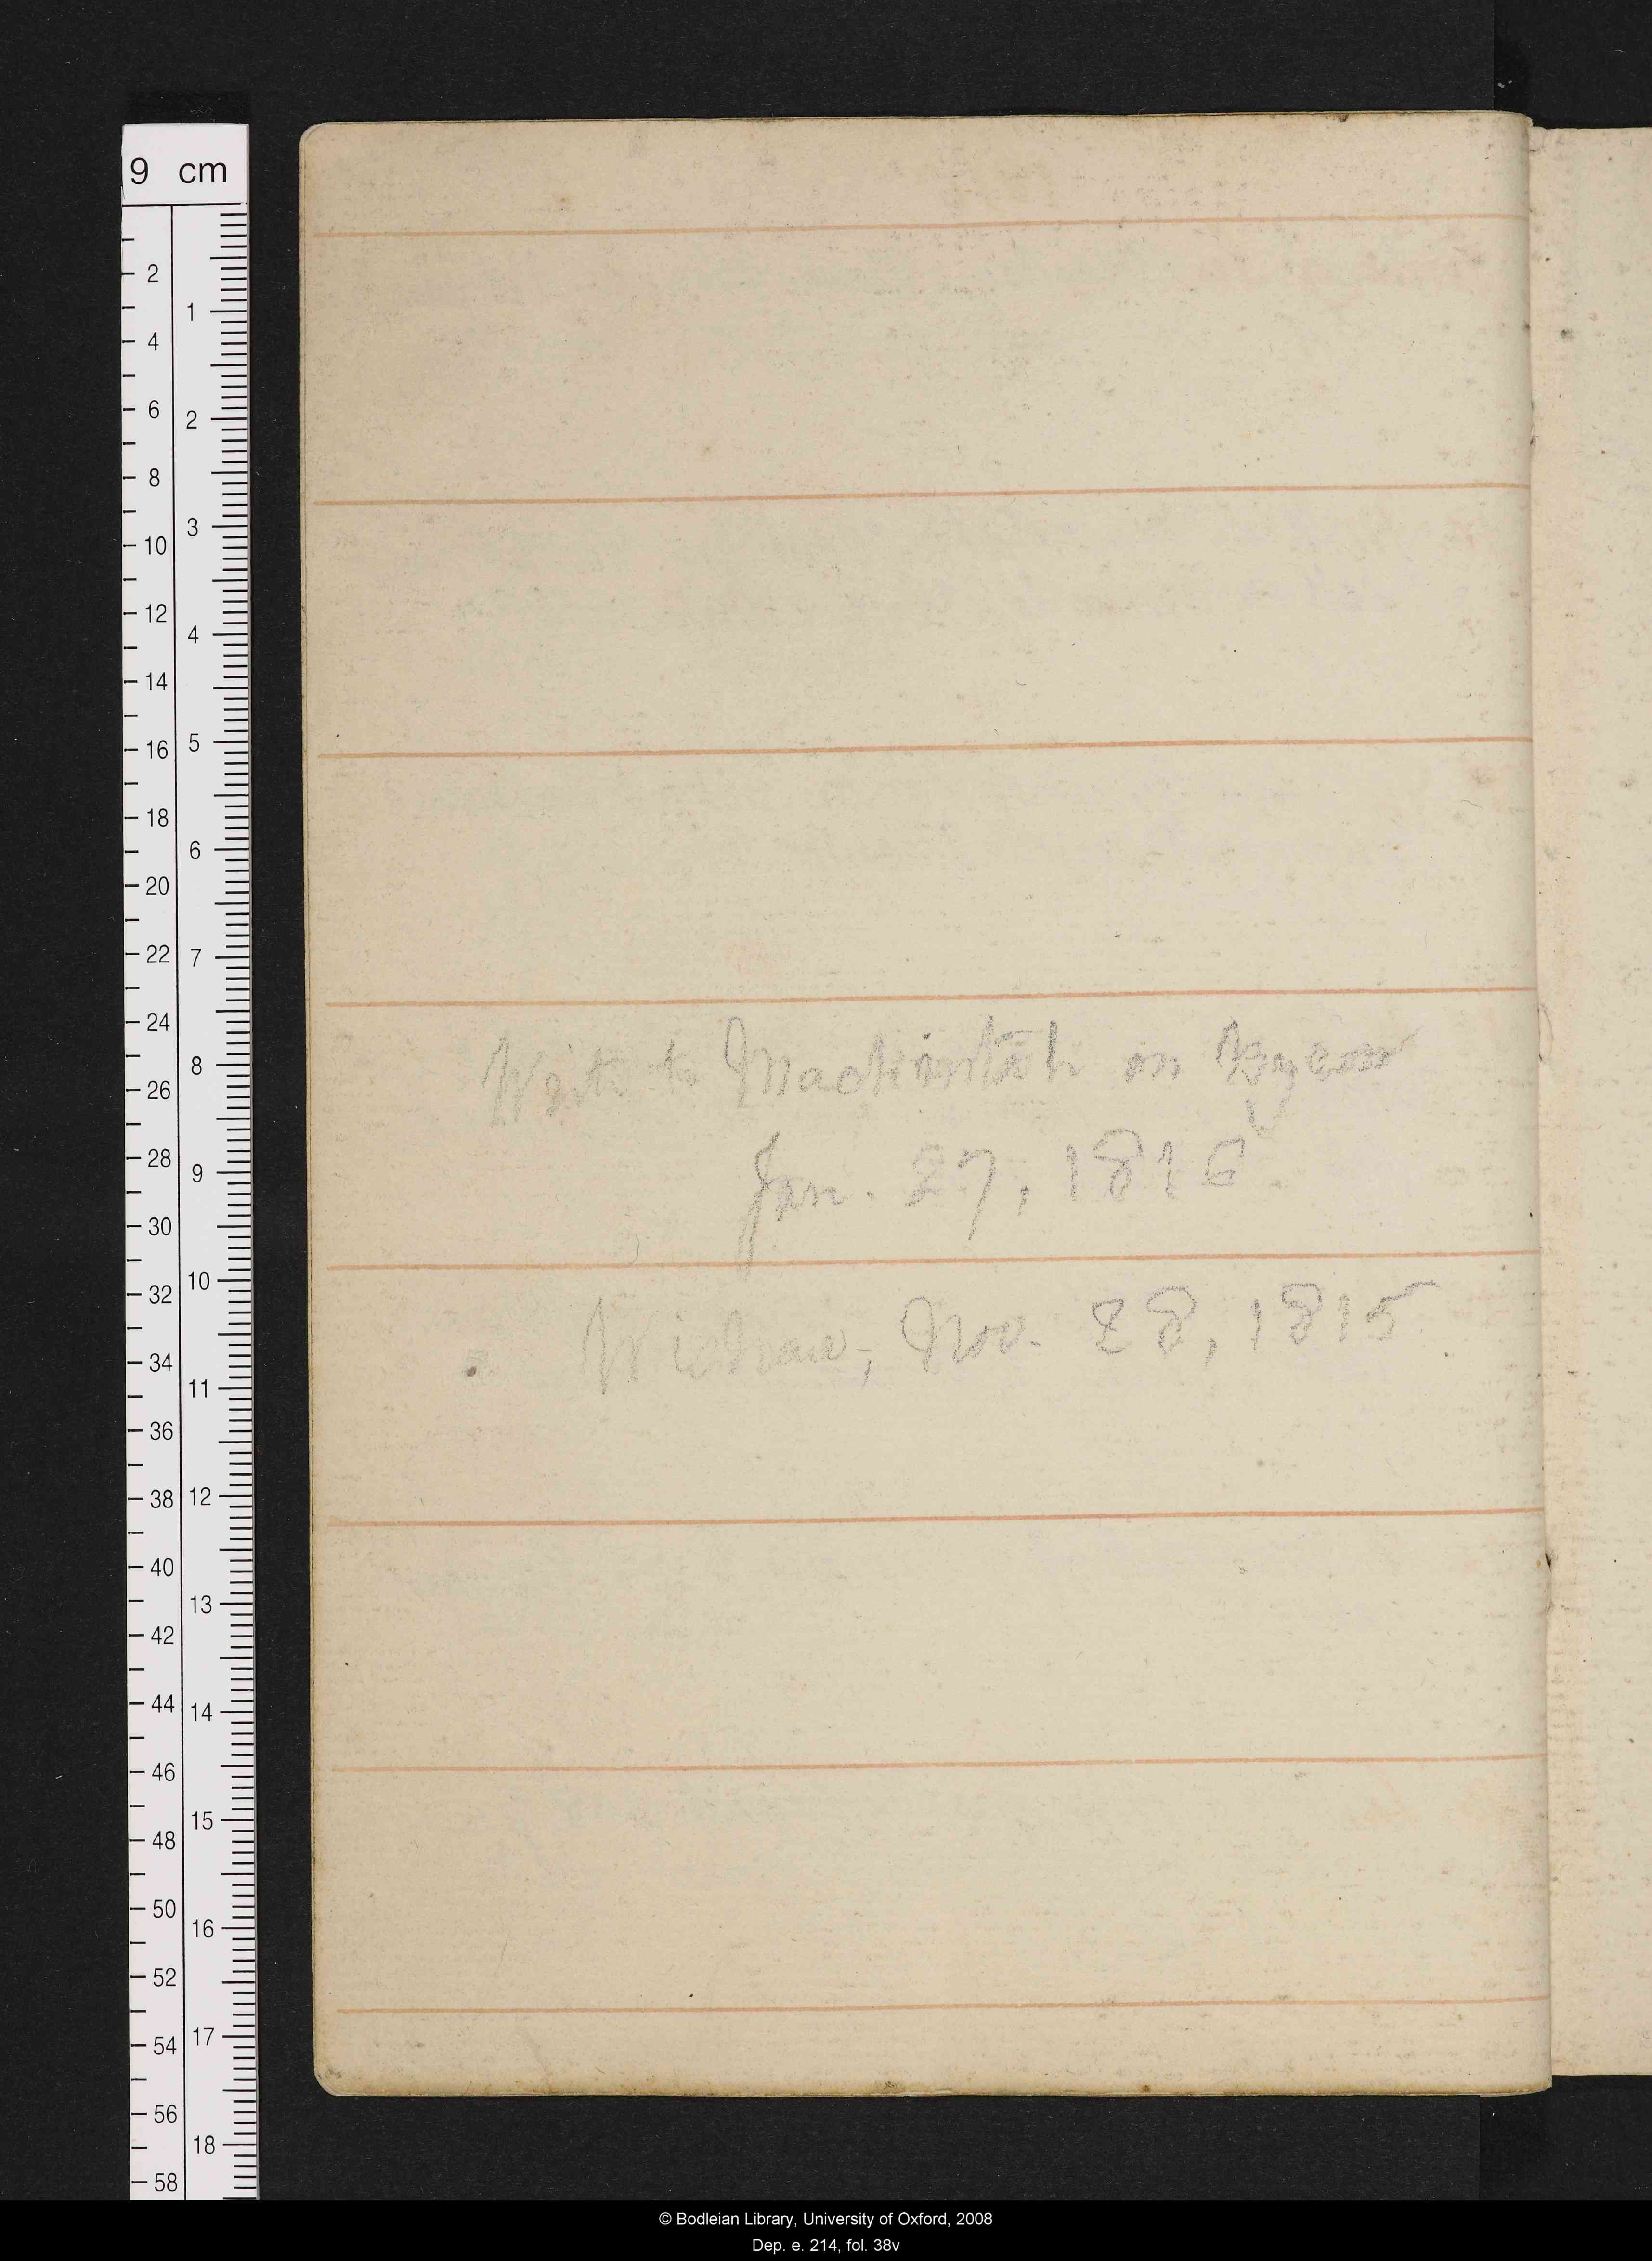 9 cm
2
4
6
8
10
12
14
16
18
20
22
24
26
28
30
32
34
36
38
40
42
44
46
48
50
52
54
56
58
1
2
3
4
5
6
7
8
9
10
11
12
13
14
15
16
17
18
Write to Mackintosh on Byron
Jan. 27, 1816
Wishaw, Nov. 28, 1815
© Bodleian Library, University of Oxford, 2008
Dep. e. 214, fol. 38v